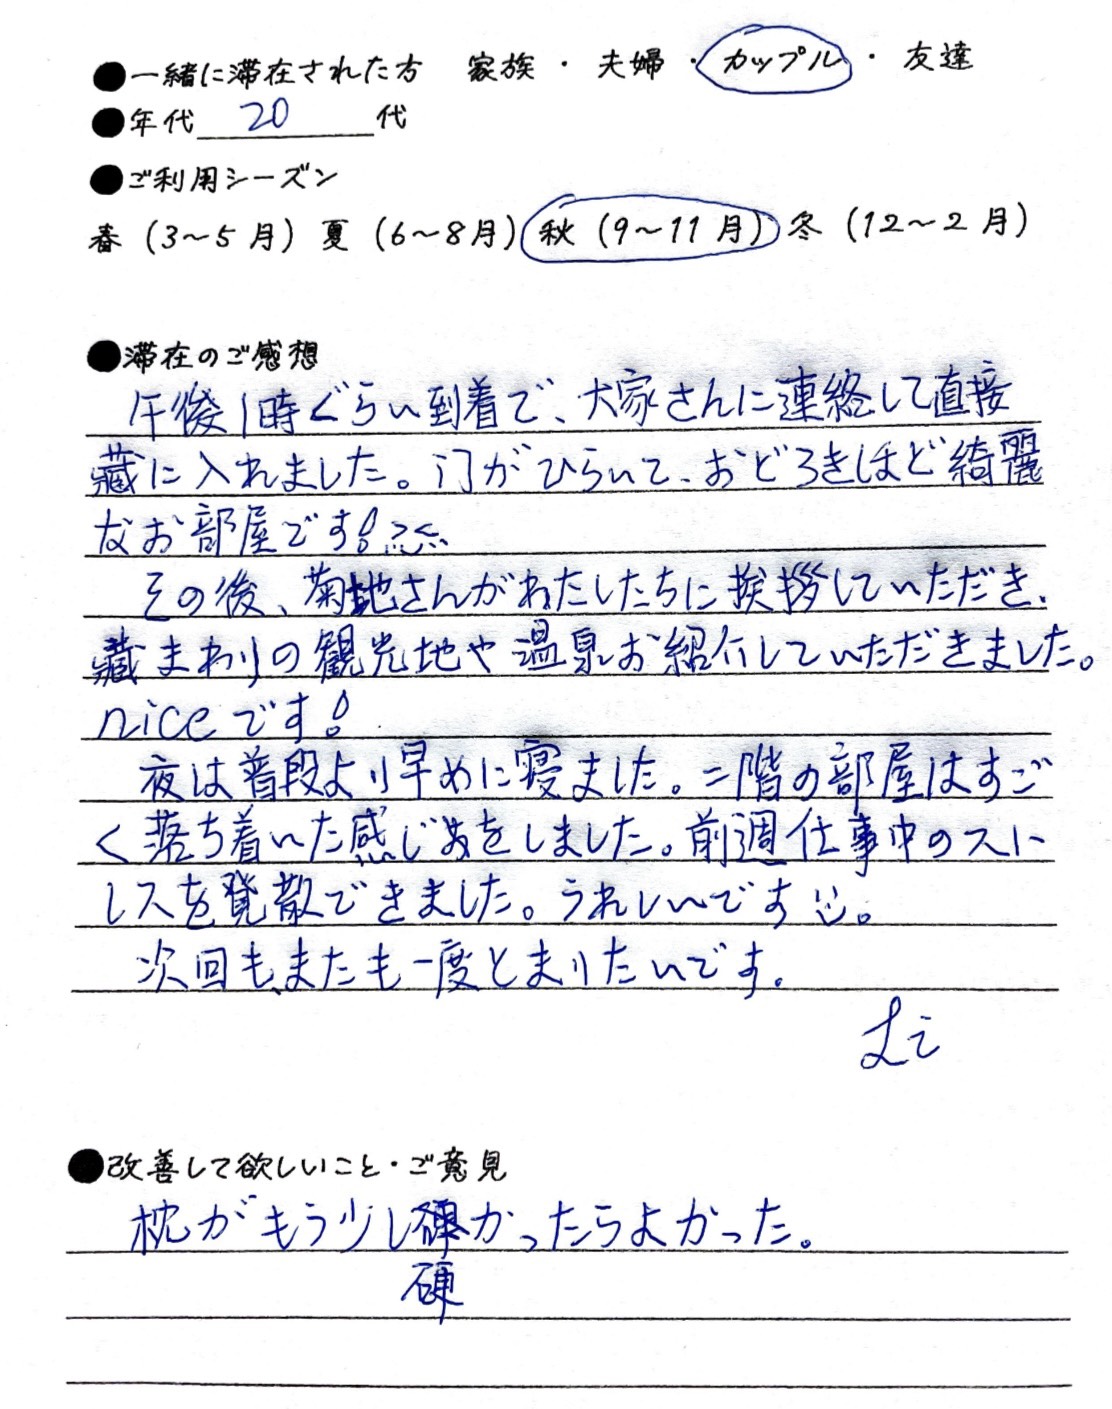 ●一緒に滞在された方 家族・夫婦・カップル・友達
●年代 20 代
●ご利用シーズン
春(3~5月)夏(6~8月)秋(9~11月)冬(12~2月)
●滞在のご感想
午後1時ぐらい到着で、大家さんに連絡して直接
藏に入れました。门がひらいて、おどろきほど綺麗
なお部屋です!
その後、菊地さんがわたしたちに挨拶していただき、
藏まわりの観光地や温泉お紹介していただきました。
niceです!
夜は普段より早めに寝ました。二階の部屋はすご
く落ち着いた感じをしました。前週仕事中のスト
レスを発散できました。うれしいです。
次回も、またも一度とまりたいです。
Li
●改善して欲しいこと・ご意見
枕がもう少し硬かったらよかった。
硬